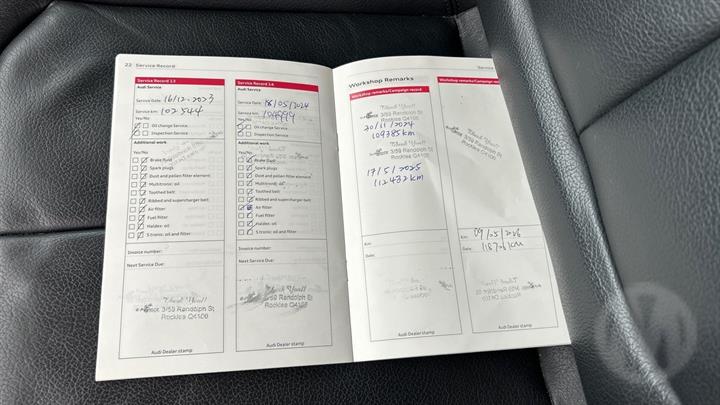 22 Service Record
Service Record 13
Audi Service
Service Date: 16/12-2023
Service km: 102544
Yes/No
Oil change Service
Inspection Service
Additional work
Yes/No
Brake fluid
Spark plugs
Dust and pollen filter element
Multitronic: oil
Toothed belt
Ribbed and supercharger belt
Air filter
Fuel filter
Haldex: oil
S tronic: oil and filter
Invoice number:
Next Service Due:
Thank You!!
3/59 Randolph St
Rocklea Q4106
Audi Dealer stamp
Service Record 14
Audi Service
Service Date: 18/05/2024
Service km:
Yes/No
Oil change Service
Inspection Service
Additional work
Yes/No
Brake fluid
Spark plugs
Dust and pollen filter element
Multitronic: oil
Toothed belt
Ribbed and supercharger belt
Air filter
Fuel filter
Haldex: oil
S tronic: oil and filter
Invoice number:
Next Service Due:
Thank You!!
3/59 Randolph St
Rocklea Q4106
Audi Dealer stamp
Workshop Remarks
Workshop remarks/Campaign record
Thank You!!
3/59 Randolph St
Rocklea Q4106
30/11/2024
109385km
Thank You!!
3/59 Randolph St
Rocklea Q4106
17/5/2025
112432km
Km:
Date:
Thank You!!
Randolph St
Rocklea Q4106
Audi Dealer stamp
Service
Workshop remarks/Campaign record
Thank You!!
3/59 Randolph St
Rocklea Q4106
Km: 09/05/2026
Date: km
Thank You!!
Randolph St
Rocklea Q4106
Audi Dealer stamp